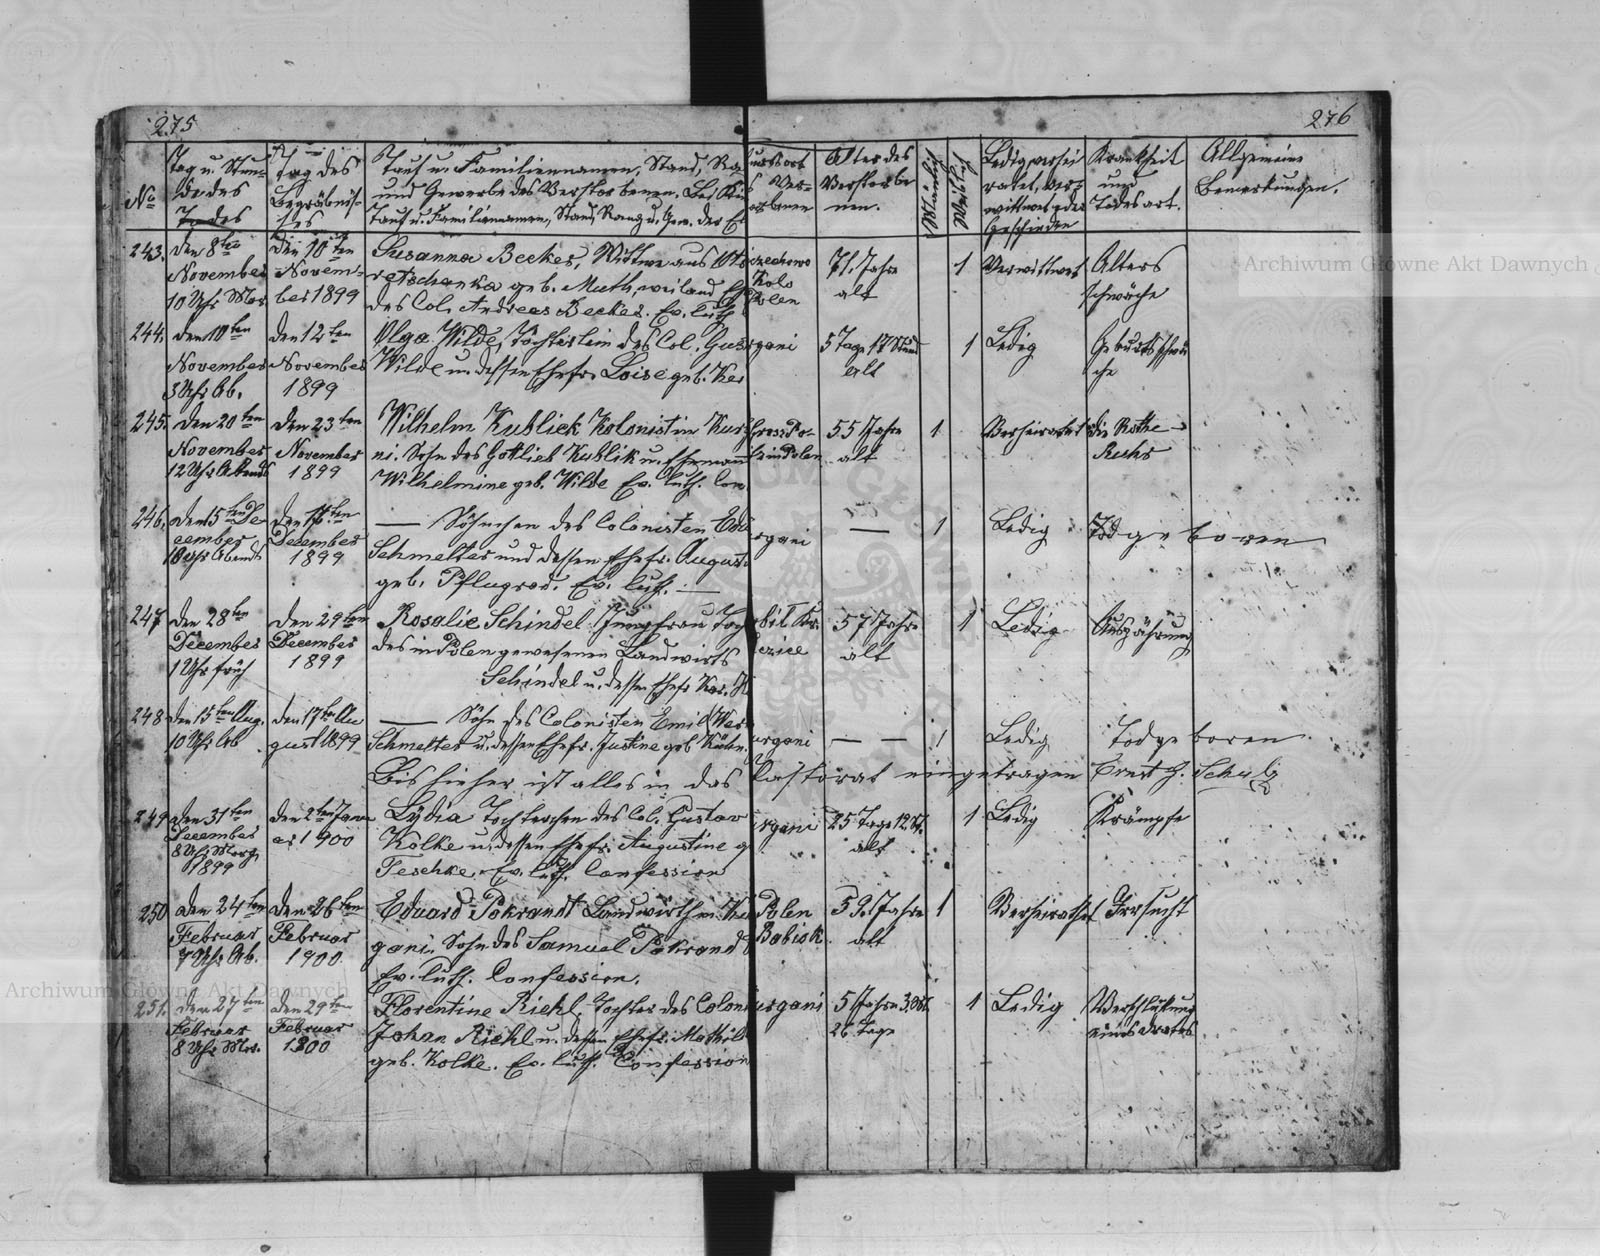 275
276
No
Tag u. Stun-
de des
Todes
Tag des
Begräbnis-
ses
Tauf u. Familiennamen, Stand, Ra
und Gewerbe des Verstorbenen. Bei Ki
Tauf u. Familiennamen, Stand, Rang u. Gew. der E
urtsort
s Ver-
orbenen
Alter des
Verstorbe
nen.
Männlich
Weiblich
Ledig, verhei
ratet, ver-
wittwet oder
geschieden
Krankheit
und
Todesart.
Allgemeine
Bemerkungen.
243.
den 8ten
November
10 Uhr Mor.
den 10ten
Novem-
ber 1899
Susanna Becker, Wittwe aus
geb. Muth, weiland
des Col. Andreas Becker. Ev. luth
Kolo
Polen
71. Jahre
alt
1
Verwittwet
Alters
schwäche
244.
den 10ten
November
3 Uhr Ab.
den 12ten
November
1899
Olga Wilde, Töchterlein des Col. Gus
Wilde u. dessen Ehefr. Loise geb. Ker
rgani
5 Tage 17 Stund
alt
1
Ledig
Geburtsschwä
che
245.
den 20ten
November
12 Uhr Abends
den 23ten
November
1899
Wilhelm Kublick Kolonist in Kur
ni. Sohn des Gottlieb Kublik u. Ehemann
Wilhelmine geb. Wilde Ev. luth. Con
in Polen
55 Jahre
alt
1
Verheiratet
die Rothe-
Ruhr
246.
den 15ten De
cember
10 Uhr Abends
den 17ten
December
1899
— Söhnchen des Colonisten Edu
Schmelter und dessen Ehefr. August.
geb. Pflugrad. Ev. luth. —
rgani
—
1
Ledig
Todgeboren
247
den 28ten
December
1 Uhr früh
den 29ten
December
1899
Rosalie Schindel Jungfrau Toch
des in Polen gewesenen Landwirts
Schindel u. dessen Ehefr Kar.
57 Jahre
alt
1
Ledig
Auszährung
248
den 15ten Aug.
10 Uhr Ab
den 17ten Au
gust 1899
— Sohn des Colonisten Emil
Schmelter u. dessen Ehefr. Justine geb Kühn.
urgani
— —
1
Ledig
Todgeboren
Bis hieher ist alles in das Pastorat eingetragen Ernst J. Schulz
249
den 31ten
December
8 Uhr Morg.
1899
den 2ten Janu
ar 1900
Lydia Töchterchen des Col. Gustav
Kolke u. dessen Ehefr. Augustine g
Teschke. Ev. luth. Confession
urgani
25 Tage 12 St.
alt
1
Ledig
Krämpfe
250
den 24ten
Februar
7 Uhr Ab.
den 26ten
Februar
1900
Eduard Pokrandt Landwirth in Kur
gani. Sohn des Samuel Pokrand
Ev. luth. Confession.
Polen
Babiak
59. Jahre
alt
1
Verheirathet
Irrsucht
251.
den 27ten
Februar
8 Uhr Mor.
den 29ten
Februar
1900
Florentine Riehl. Tochter des Coloni
Johan Riehl u. dessen Ehefr. Mathild
geb. Kolke. Ev. luth. Confession
urgani
5 Jahre 3. Mt.
26 Tage
1
Ledig
Verschlukung
eines drates
Archiwum Główne Akt Dawnych
Archiwum Główne Akt Dawnych